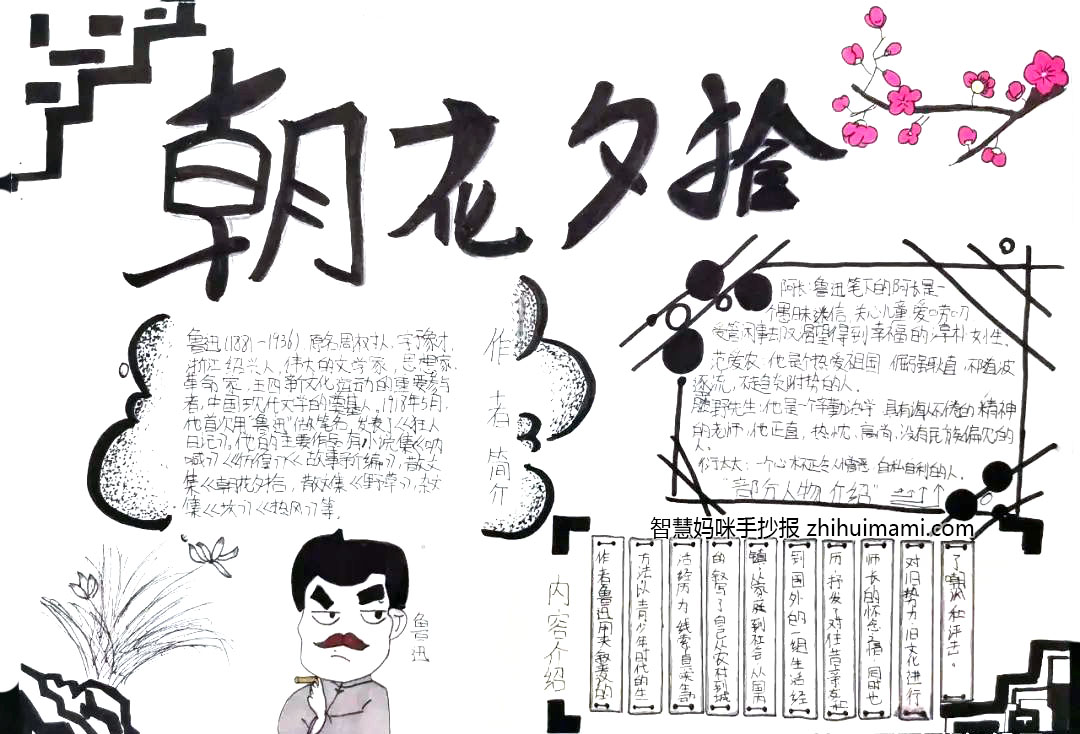 朝花夕拾
作者简介
鲁迅(1881-1936)，原名周树人，字豫才，
浙江绍兴人，伟大的文学家，思想家，
革命家，五四新文化运动的重要参与
者，中国现代文学的奠基人。1918年5月，
他首次用"鲁迅"做笔名，发表了《狂人
日记》，他的主要作品有小说集《呐
喊》《彷徨》《故事新编》，散文
集《朝花夕拾，散文集《野草》，杂文
集《坟》《热风》等。
阿长：鲁迅笔下的阿长是一
个愚昧迷信，关心儿童，爱唠叨
爱管闲事却又渴望得到幸福的淳朴女生。
范爱农：他是个热爱祖国，倔强耿直，不随波
逐流，不趋炎附势的人。
藤野先生：他是个勤治学，具有诲人不倦的精神
的老师，他正直，热忱，高尚，没有民族偏见的
人。
衍太太：一个心术不正，自私自利的人。
"部分人物介绍"
智慧妈咪手抄报 zhihuimami.com
鲁迅
内容介绍
作者鲁迅用夹叙夹议的
方法以青少年时代的生
活经历为线索真实生动
的叙写了自己从农村到城
镇，从家庭到社会，从国内
到国外的一组生活经
历，抒发了对往昔亲友和
师长的怀念之情，同时也
对旧势力、旧文化进行
了嘲讽和评击。